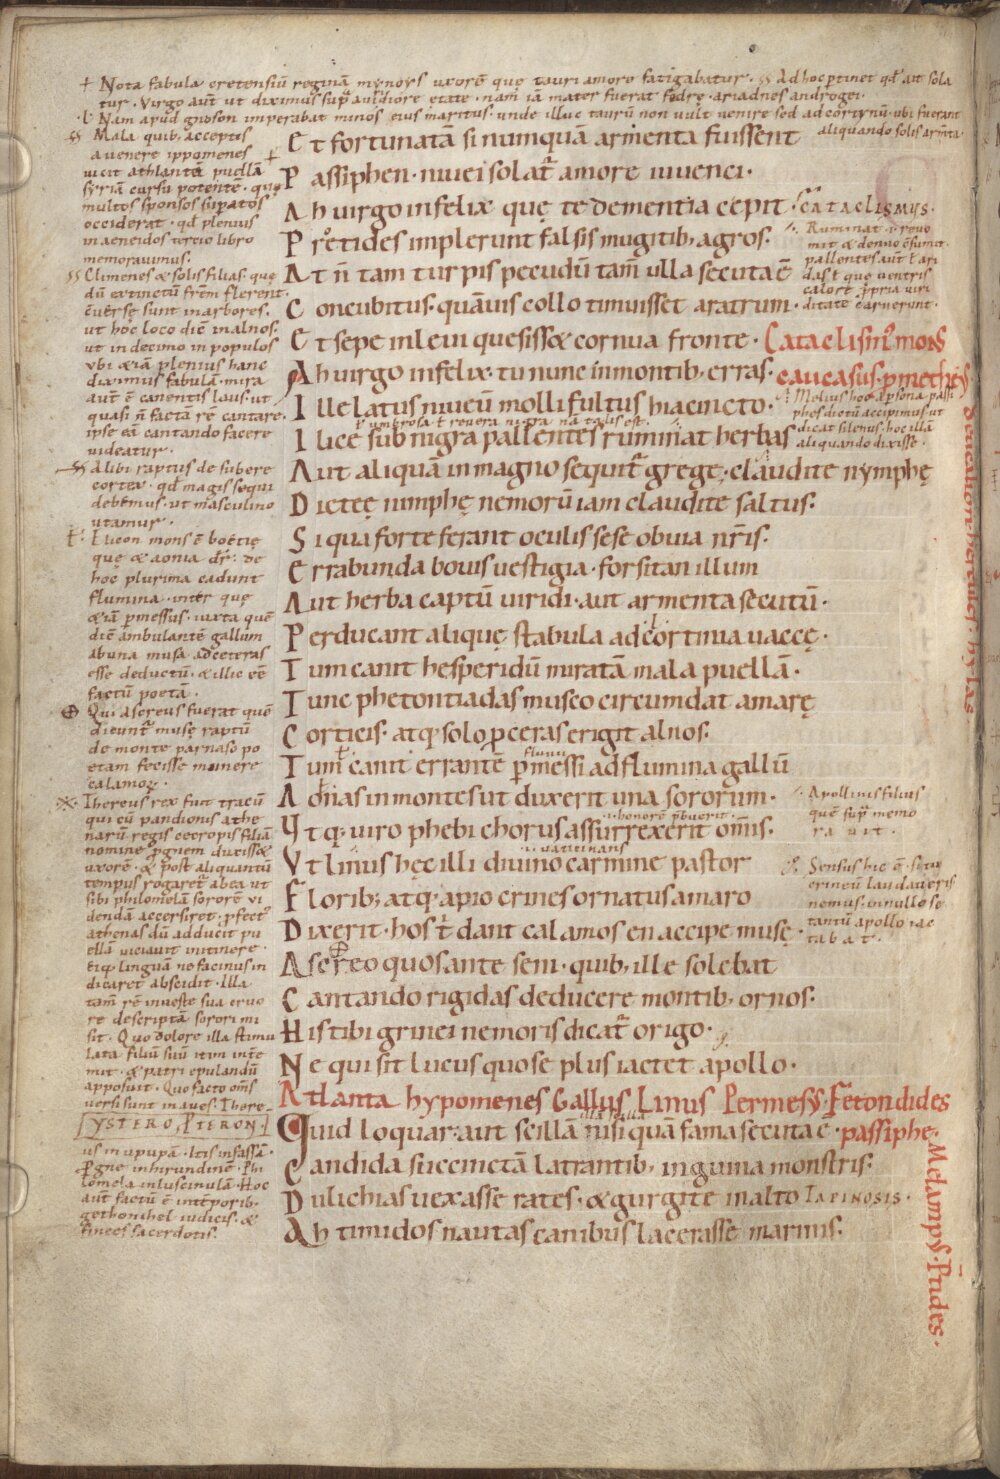 + Nota fabula cretensiū reginā mynoys uxorē quę tauri amore fatigabatur. Ad hoc ptinet qđ ait sola
tur. Virgo aūt ut diximus sup̄ audiore etate. nam iā mater fuerat fędrę. ariadnes androgei.
Nam apud gnoson imperabat minos eius maritus. unde illuc taurū non uult uenire sed ad cortynū. ubi fuerant
aliquando solis armta.
Mala quib; acceptis
a uenere ippomenes
uicit athlantē puellā
syriā cursu potentē. quę
multos sponsos supatos
occiderat. qđ plenius
in aeneidos tercio libro
memorauimus.
Climenes & solis filias. quę
dū extinctū frēm flerent.
cuersę sunt in arbores.
ut hoc loco diē in alnos.
ut in decimo in populos
ubi & iā plenius hanc
diximus fabulā. mira
aut̄ ē canentis laus. ut
quasi n̄ factā rē cantare.
ipse eā cantando facere
uideatur.
Alibi raptus de subere
cortex. qđ magis sequi
debemus. ut masculino
utamur.
Elicon mons ē boetię
quę & aonia dr̄. de
hoc plurima cadunt
flumina. inter quę
& iā pmessus. iuxta quē
diē ambulantē gallum
ab una musa ad ceteras
esse deductū. & illic eē
factū poetā.
Qui ascreus fuerat quē
dicunt̄ musę raptū
de monte parnaso po
etam fecisse munere
calamoꝝ.
Thereus rex fuit tracū
qui cū pandionis athe
narū regis cecropis filiā
nomine prgnem duxiss&
uxorē. & post aliquantū
tempus rogaret̄ ab ea ut
sibi philomelā sororē ui
dendā accersiret. pfect'
athenas dū adducit pu
ellā uiciauit in itinere.
eiq; linguā ne facinus in
dicaret abscidit. Illa
tam̄ rē in ueste sua cruo
re descriptā sorori mi
sit. Quo dolore illa stimu
lata filiū suū itim int̄e
mit. & patri epulandū
apposuit. Quo facto om̄s
uersi sunt in aues. There
YSTERO PTERON
us in upupā. Itis in fassā.
Pgne in hirundinē. Phi
lomela in lusciniā. Hoc
aut̄ factū ē int̄ēporib;
gethonihel iudicis. &
finees sacerdotis.
Et fortunatā si numquā armenta fuissent
Passiphen. niuei solat̄ amore iuuenci.
Ah uirgo infelix quę te dementia cepit.
Prętides implerunt falsis mugitib; agros.
At n̄ tam turpis pecudū tam̄ ulla secuta ē
Concubitus. quāuis collo timuisset aratrum.
Et sepe in leui quesiss& cornua fronte.
Ah uirgo infelix. tu nunc in montib; erras.
Ille latus niueū molli fultus hiacincto.
ł umbrosa ł reuera nigra nā talis est.
Ilice sub nigra pallentes ruminat herbas
Aut aliquā in magno sequit̄ grege. claudite nymphę
Dicteę nimphę nemorū iam claudite saltus.
Si qua forte ferant oculis sese obuia nr̄is.
Errabunda bouis uestigia. forsitan illum
Aut herba captū uiridi. aut armenta secutū.
Perducant aliquę stabula ad cortinia uaccę.
Tum canit hesperidū miratā mala puellā.
Tunc phetontiadas musco circumdat amarę
Corticis. atq; solo pceras erigit alnos.
fluuii
Tum canit errantē pmessi ad flumina gallū
Aonias in montes ut duxerit una sororum.
i. honorē p̄buerit.
Vtq; uiro phebi chorus assurrexerit om̄is.
i. uaticinans
Vt linus hęc illi diuino carmine pastor
Florib; atq; apio crines ornatus amaro
Dixerit. hos t̄ dant calamos en accipe musę.
Ascreo quos ante seni. quib; ille solebat
Cantando rigidas deducere montib; ornos.
His tibi grinei nemoris dicat̄ origo.
Ne qui sit lucus quo se plus iactet apollo.
Atlanta hypomenes Gallus Linus Permessꝰ. Fetondides
Quid loquar. aut scillā nisi quā fama secuta ē. passiphe.
Candida succinctā latrantib; inguina monstris.
Dulichias uexasse rates. & gurgite in alto TAPINOSIS.
Ah timidos nautas canibus lacerasse marinis.
CATACLISMYS.
Ruminat. i. reuo
mit & denuo ēsumit.
pallentes aut̄ ł ari
das ł quę uentris
calore ppria uiri
ditate caruerunt.
Cataclismꝰ mons
caucasus. pmethꝰ
Melius hoc a psona pasi
phes dictū accipimus. ut
dicat silenus. hoc illam
aliquando dixisse.
deucalion. hercules. hylas
Apollinis filius
quē sup̄ memo
rauit.
Sensus hic ē. si tu
grineū laudaueris
nemus. in nullo se
tantū apollo iac
tabat.
Melampꝰ. Ptides.